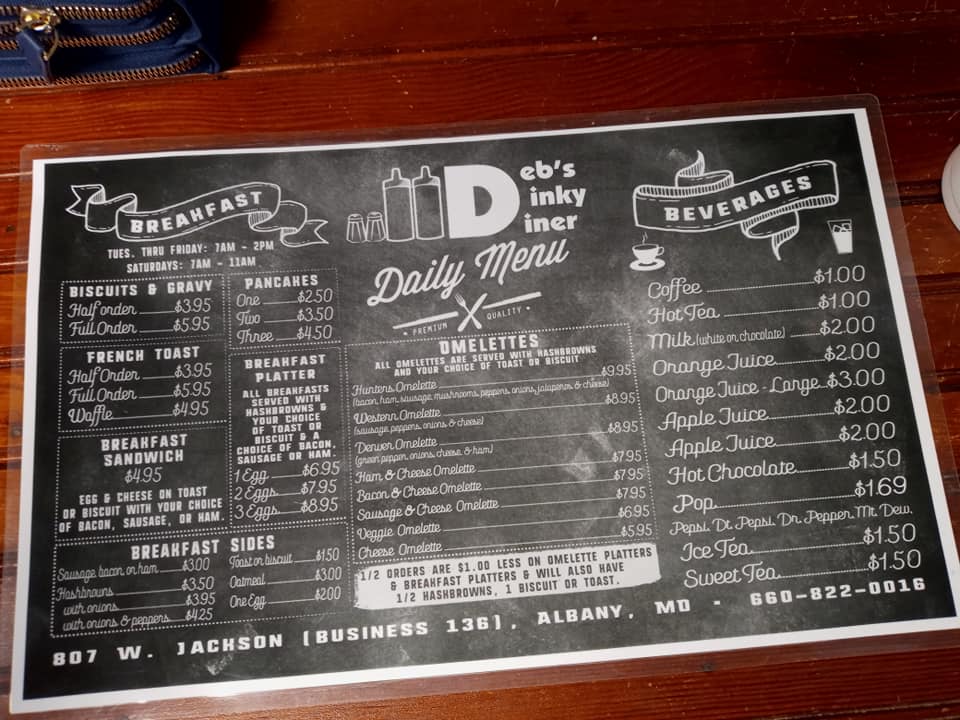 BREAKFAST
TUES. THRU FRIDAY: 7AM - 2PM
SATURDAYS: 7AM - 11AM
BISCUITS & GRAVY
Half order $3.95
Full Order $5.95
FRENCH TOAST
Half Order $3.95
Full Order $5.95
Waffle $4.95
BREAKFAST
SANDWICH
$4.95
EGG & CHEESE ON TOAST
OR BISCUIT WITH YOUR CHOICE
OF BACON, SAUSAGE, OR HAM.
PANCAKES
One $2.50
Two $3.50
Three $4.50
BREAKFAST
PLATTER
ALL BREAKFASTS
SERVED WITH
HASHBROWNS &
YOUR CHOICE
OF TOAST OR
BISCUIT & A
CHOICE OF BACON,
SAUSAGE OR HAM.
1 Egg $6.95
2 Eggs $7.95
3 Eggs $8.95
BREAKFAST SIDES
Sausage, bacon, or ham $3.00
Hashbrowns $3.50
with onions $3.95
with onions & peppers $4.25
Toast or biscuit $1.50
Oatmeal $3.00
One Egg $2.00
Deb's
Dinky
Diner
Daily Menu
PREMIUM QUALITY
OMELETTES
ALL OMELETTES ARE SERVED WITH HASHBROWNS
AND YOUR CHOICE OF TOAST OR BISCUIT
Hunters Omelette $9.95
(bacon, ham, sausage, mushrooms, peppers, onions, jalapenos & cheese)
Western Omelette $8.95
(sausage, peppers, onions & cheese)
Denver Omelette $8.95
(green pepper, onions, cheese, & ham)
Ham & Cheese Omelette $7.95
Bacon & Cheese Omelette $7.95
Sausage & Cheese Omelette $7.95
Veggie Omelette $6.95
Cheese Omelette $5.95
1/2 ORDERS ARE $1.00 LESS ON OMELETTE PLATTERS
& BREAKFAST PLATTERS & WILL ALSO HAVE
1/2 HASHBROWNS, 1 BISCUIT OR TOAST.
BEVERAGES
Coffee $1.00
Hot Tea $1.00
Milk (white or chocolate) $2.00
Orange Juice $2.00
Orange Juice - Large $3.00
Apple Juice $2.00
Apple Juice $2.00
Hot Chocolate $1.50
Pop $1.69
Pepsi, Dt. Pepsi, Dr. Pepper, Mt. Dew,
Ice Tea $1.50
Sweet Tea $1.50
807 W. JACKSON (BUSINESS 136), ALBANY, MO - 660-822-0016